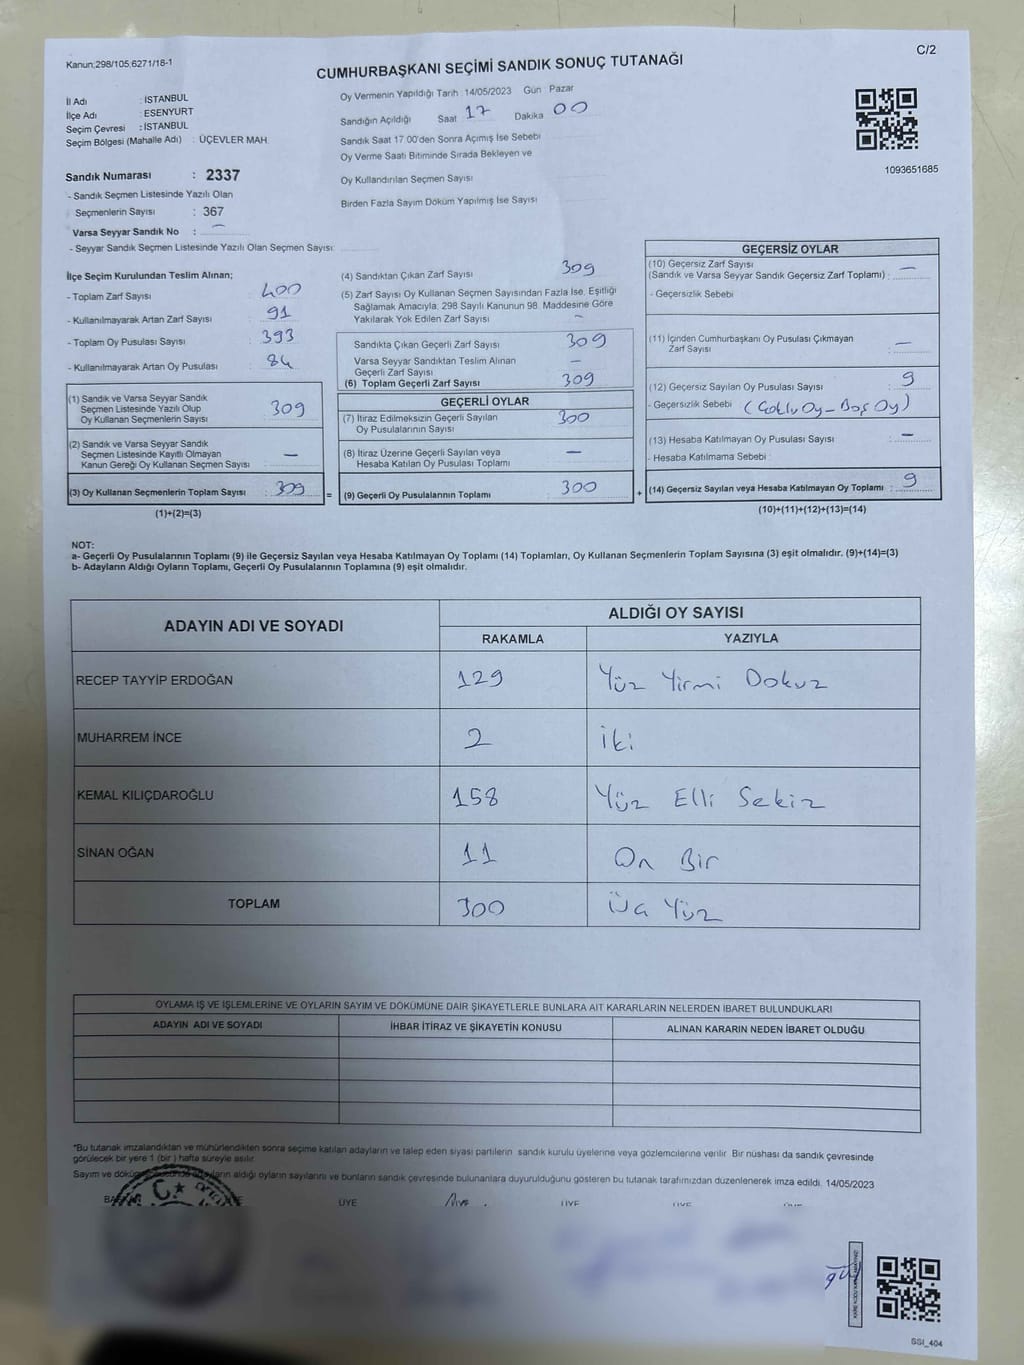 Kanun:298/105,6271/18-1
C/2
CUMHURBAŞKANI SEÇİMİ SANDIK SONUÇ TUTANAĞI
İl Adı : İSTANBUL
İlçe Adı : ESENYURT
Seçim Çevresi : İSTANBUL
Seçim Bölgesi (Mahalle Adı) : ÜÇEVLER MAH.
Sandık Numarası : 2337
- Sandık Seçmen Listesinde Yazılı Olan
Seçmenlerin Sayısı : 367
Varsa Seyyar Sandık No : —
- Seyyar Sandık Seçmen Listesinde Yazılı Olan Seçmen Sayısı:
Oy Vermenin Yapıldığı Tarih :14/05/2023 Gün : Pazar
Sandığın Açıldığı Saat 17 Dakika 00
Sandık Saat 17.00'den Sonra Açımış İse Sebebi
Oy Verme Saati Bitiminde Sırada Bekleyen ve
Oy Kullandırılan Seçmen Sayısı
Birden Fazla Sayım Döküm Yapılmış İse Sayısı
1093651685
İlçe Seçim Kurulundan Teslim Alınan;
- Toplam Zarf Sayısı : 400
- Kullanılmayarak Artan Zarf Sayısı : 91
- Toplam Oy Pusulası Sayısı : 393
- Kullanılmayarak Artan Oy Pusulası : 84
(1) Sandık ve Varsa Seyyar Sandık
Seçmen Listesinde Yazılı Olup
Oy Kullanan Seçmenlerin Sayısı : 309
(2) Sandık ve Varsa Seyyar Sandık
Seçmen Listesinde Kayıtlı Olmayan
Kanun Gereği Oy Kullanan Seçmen Sayısı : —
(3) Oy Kullanan Seçmenlerin Toplam Sayısı : 309
(1)+(2)=(3)
(4) Sandıktan Çıkan Zarf Sayısı 309
(5) Zarf Sayısı Oy Kullanan Seçmen Sayısından Fazla İse, Eşitliği
Sağlamak Amacıyla; 298 Sayılı Kanunun 98. Maddesine Göre
Yakılarak Yok Edilen Zarf Sayısı —
Sandıkta Çıkan Geçerli Zarf Sayısı 309
Varsa Seyyar Sandıktan Teslim Alınan
Geçerli Zarf Sayısı —
(6) Toplam Geçerli Zarf Sayısı 309
GEÇERLİ OYLAR
(7) İtiraz Edilmeksizin Geçerli Sayılan
Oy Pusulalarının Sayısı 300
(8) İtiraz Üzerine Geçerli Sayılan veya
Hesaba Katılan Oy Pusulası Toplamı —
= (9) Geçerli Oy Pusulalarının Toplamı 300
GEÇERSİZ OYLAR
(10) Geçersiz Zarf Sayısı
(Sandık ve Varsa Seyyar Sandık Geçersiz Zarf Toplamı) : —
- Geçersizlik Sebebi
(11) İçinden Cumhurbaşkanı Oy Pusulası Çıkmayan
Zarf Sayısı : —
(12) Geçersiz Sayılan Oy Pusulası Sayısı : 9
- Geçersizlik Sebebi (Çoklu Oy - Boş Oy)
(13) Hesaba Katılmayan Oy Pusulası Sayısı : —
- Hesaba Katılmama Sebebi
+ (14) Geçersiz Sayılan veya Hesaba Katılmayan Oy Toplamı : 9
(10)+(11)+(12)+(13)=(14)
NOT:
a- Geçerli Oy Pusulalarının Toplamı (9) ile Geçersiz Sayılan veya Hesaba Katılmayan Oy Toplamı (14) Toplamları, Oy Kullanan Seçmenlerin Toplam Sayısına (3) eşit olmalıdır. (9)+(14)=(3)
b- Adayların Aldığı Oyların Toplamı, Geçerli Oy Pusulalarının Toplamına (9) eşit olmalıdır.
ADAYIN ADI VE SOYADI ALDIĞI OY SAYISI
RAKAMLA YAZIYLA
RECEP TAYYİP ERDOĞAN 129 Yüz Yirmi Dokuz
MUHARREM İNCE 2 İki
KEMAL KILIÇDAROĞLU 158 Yüz Elli Sekiz
SİNAN OĞAN 11 On Bir
TOPLAM 300 Üç Yüz
OYLAMA İŞ VE İŞLEMLERİNE VE OYLARIN SAYIM VE DÖKÜMÜNE DAİR ŞİKAYETLERLE BUNLARA AİT KARARLARIN NELERDEN İBARET BULUNDUKLARI
ADAYIN ADI VE SOYADI İHBAR İTİRAZ VE ŞİKAYETİN KONUSU ALINAN KARARIN NEDEN İBARET OLDUĞU
*Bu tutanak imzalandıktan ve mühürlendikten sonra seçime katılan adayların ve talep eden siyasi partilerin sandık kurulu üyelerine veya gözlemcilerine verilir. Bir nüshası da sandık çevresinde
görülecek bir yere 1 (bir) hafta süreyle asılır.
Sayım ve aldığı oyların sayılarını ve bunların sandık çevresinde bulunanlara duyurulduğunu gösteren bu tutanak tarafımızdan düzenlenerek imza edildi. 14/05/2023
ÜYE ÜYE ÜYE ÜYE
SSI_404